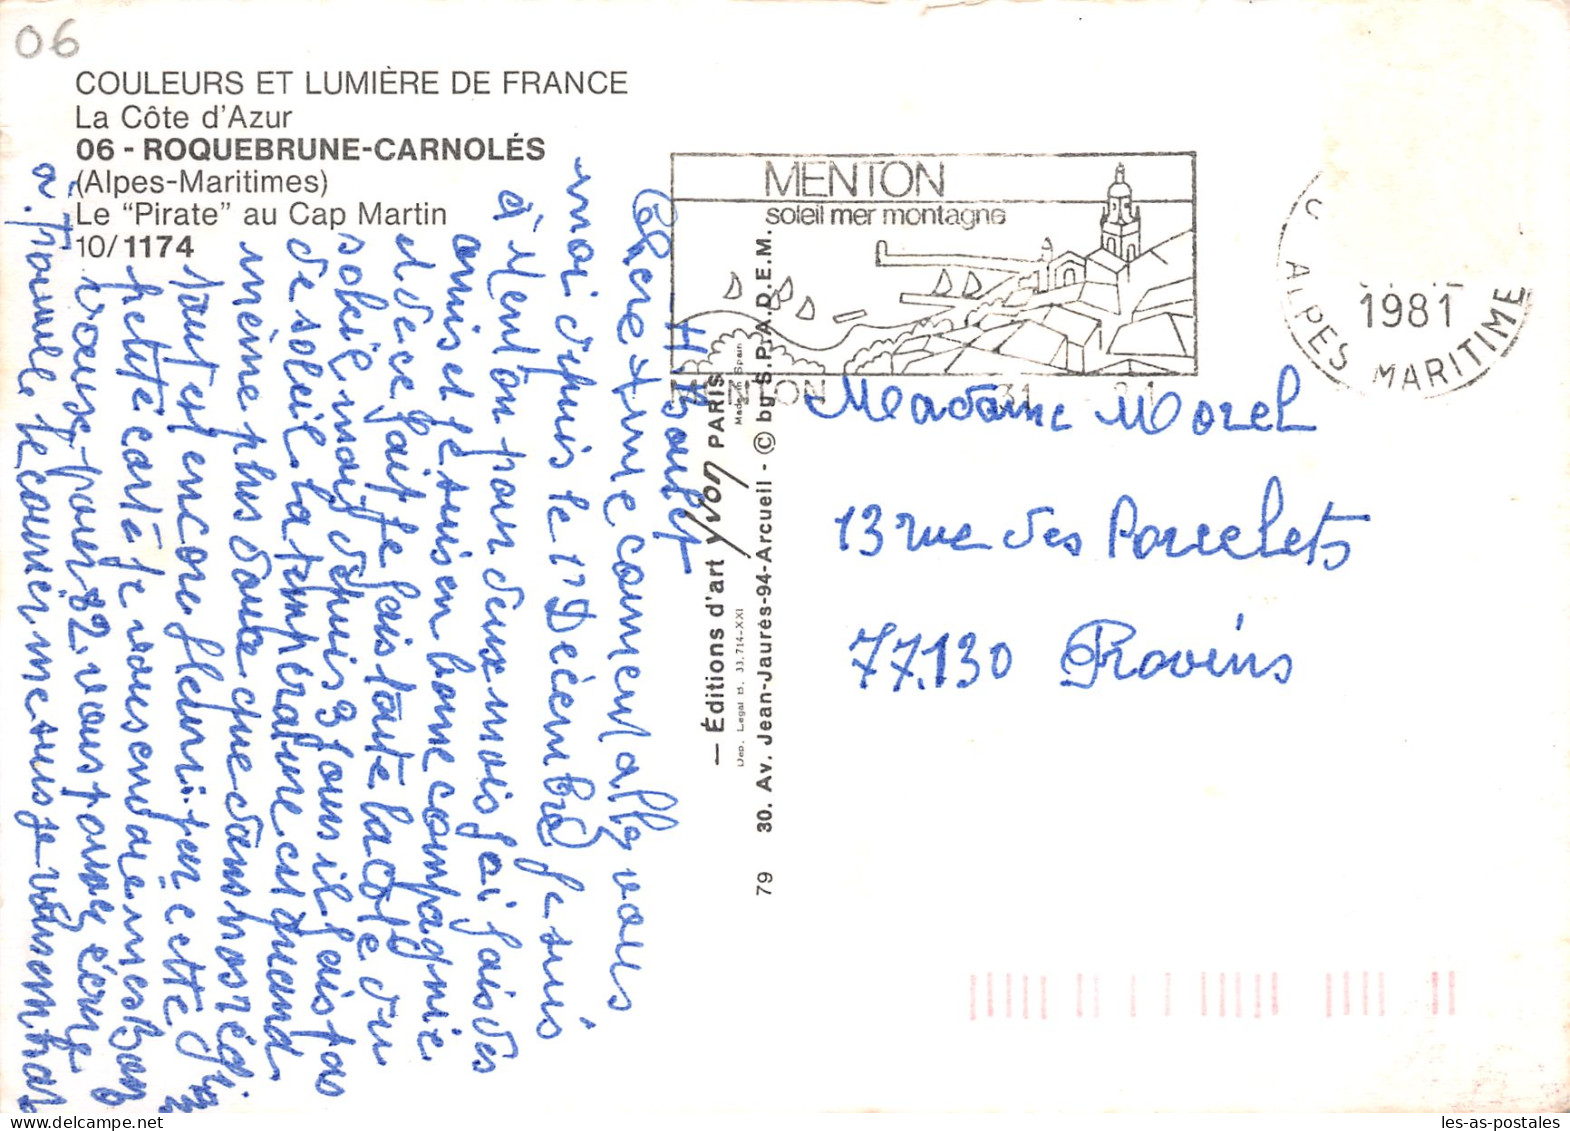 06
COULEURS ET LUMIÈRE DE FRANCE
La Côte d'Azur
06 - ROQUEBRUNE-CARNOLÉS
(Alpes-Maritimes)
Le "Pirate" au Cap Martin
10/1174
MENTON
soleil mer montagne
MENTON 31
ALPES MARITIME
1981
Chere Mme comment allez vous
moi depuis le 17 Décembre je suis
à Menton pour deux mois j'ai fais des
amis et je suis en bonne compagnie
et de ce fait je fais toute la cote du
soleil, mais depuis 3 jours il fais pas
de soleil la température est quand
même plus douce que dans nos régions
tout est encore fleuri. par cette
petite carte je vous envoie mes Bons
voeux pour 82. vous pouvez écrire
a. Trouvule le courrier me suis je
H. Boulet
— Éditions d'art Yvon PARIS
Made in Spain
Dep. Legal B. 33.714-XXI
79 30. Av. Jean-Jaurès-94-Arcueil - © by S.P.A.D.E.M.
Madame Morel
13 rue des Porcelets
77.130 Provins
les-as-postales